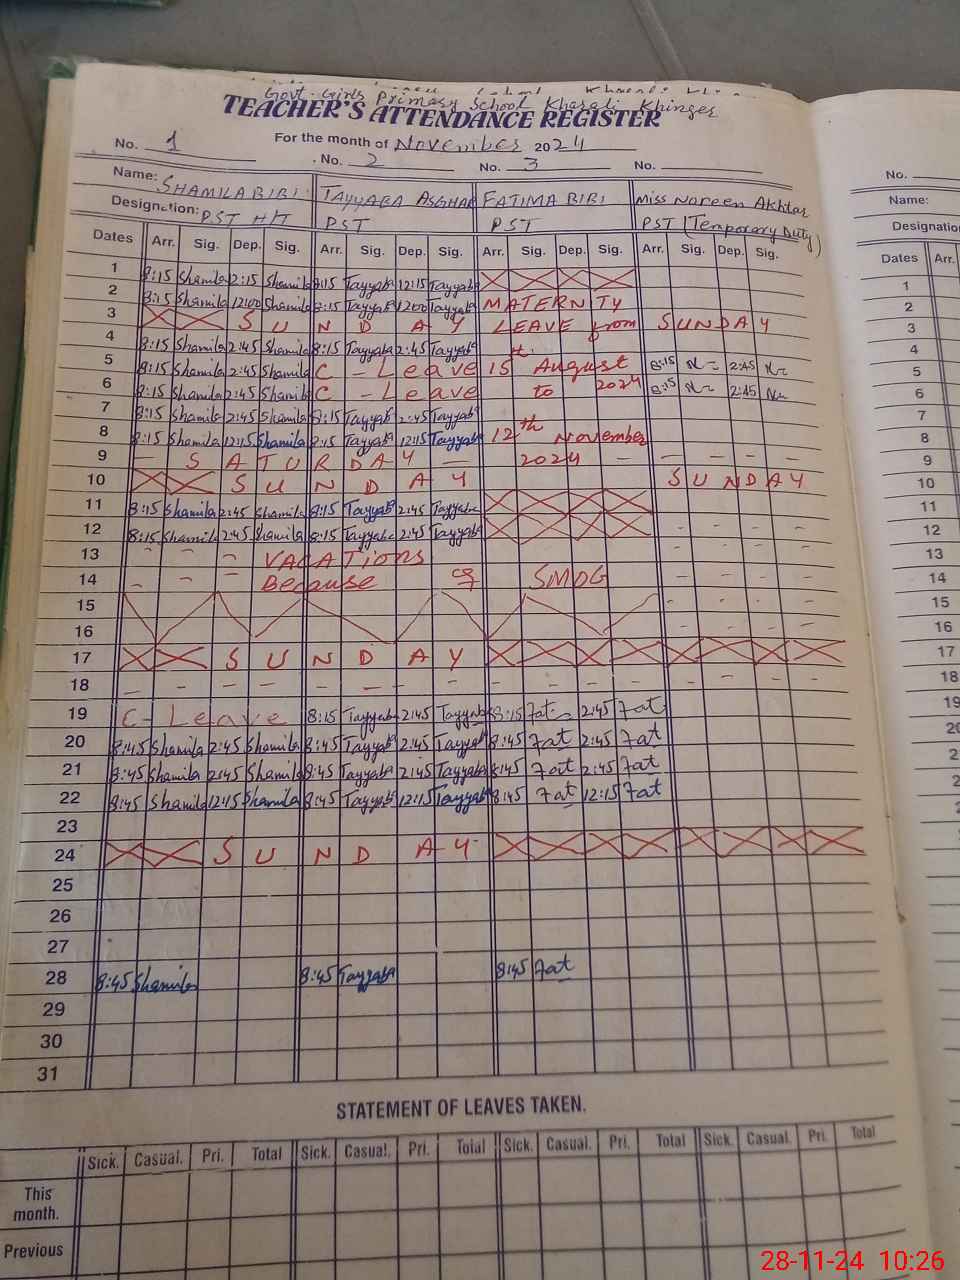 Govt. Girls Primary School Kharali Khinger
TEACHER'S ATTENDANCE REGISTER
For the month of November 2024
No. 1 No. 2 No. 3 No. No.
Name: SHAMILA BIBI TAYYABA ASGHAR FATIMA BIBI Miss Noreen Akhtar Name:
Designation: PST H/T PST PST PST (Temporary Duty) Designation
Dates Arr. Sig. Dep. Sig. Arr. Sig. Dep. Sig. Arr. Sig. Dep. Sig. Arr. Sig. Dep. Sig. Dates Arr.
1 8:15 Shamila 12:15 Shamila 8:15 Tayyaba 12:15 Tayyaba 1
2 8:15 Shamila 12:00 Shamila 8:15 Tayyaba 12:00 Tayyaba MATERNITY 2
3 SUNDAY LEAVE from SUNDAY 3
4 8:15 Shamila 2:45 Shamila 8:15 Tayyaba 2:45 Tayyaba 4
5 8:15 Shamila 2:45 Shamila C - Leave 15 st. August 8:15 2:45 5
6 8:15 Shamila 2:45 Shamila C - Leave to 2024 8:15 2:45 6
7 8:15 Shamila 2:45 Shamila 8:15 Tayyaba 2:45 Tayyaba 7
8 8:15 Shamila 12:15 Shamila 8:15 Tayyaba 12:15 Tayyaba 12th November 8
9 - SATURDAY - 2024 - - - - - 9
10 SUNDAY SUNDAY 10
11 8:15 Shamila 2:45 Shamila 8:15 Tayyaba 2:45 Tayyaba 11
12 8:15 Shamila 2:45 Shamila 8:15 Tayyaba 2:45 Tayyaba - - - - 12
13 - - - VACATIONS - - - - 13
14 - - - Because of SMOG - - - - 14
15 - - - - 15
16 - - - - 16
17 SUNDAY 17
18 - - - - - - - - - - - - - - - - 18
19 C - Leave 8:15 Tayyaba 2:45 Tayyaba 8:15 Fat 2:45 Fat 19
20 8:45 Shamila 2:45 Shamila 8:45 Tayyaba 2:45 Tayyaba 8:45 Fat 2:45 Fat 20
21 8:45 Shamila 2:45 Shamila 8:45 Tayyaba 2:45 Tayyaba 8:45 Fat 2:45 Fat
22 8:45 Shamila 12:15 Shamila 8:45 Tayyaba 12:15 Tayyaba 8:45 Fat 12:15 Fat
23
24 SUNDAY
25
26
27
28 8:45 Shamila 8:45 Tayyaba 8:45 Fat
29
30
31
STATEMENT OF LEAVES TAKEN.
Sick. Casual. Pri. Total Sick. Casual. Pri. Total Sick. Casual. Pri. Total Sick. Casual. Pri. Total
This month.
Previous
28-11-24 10:26